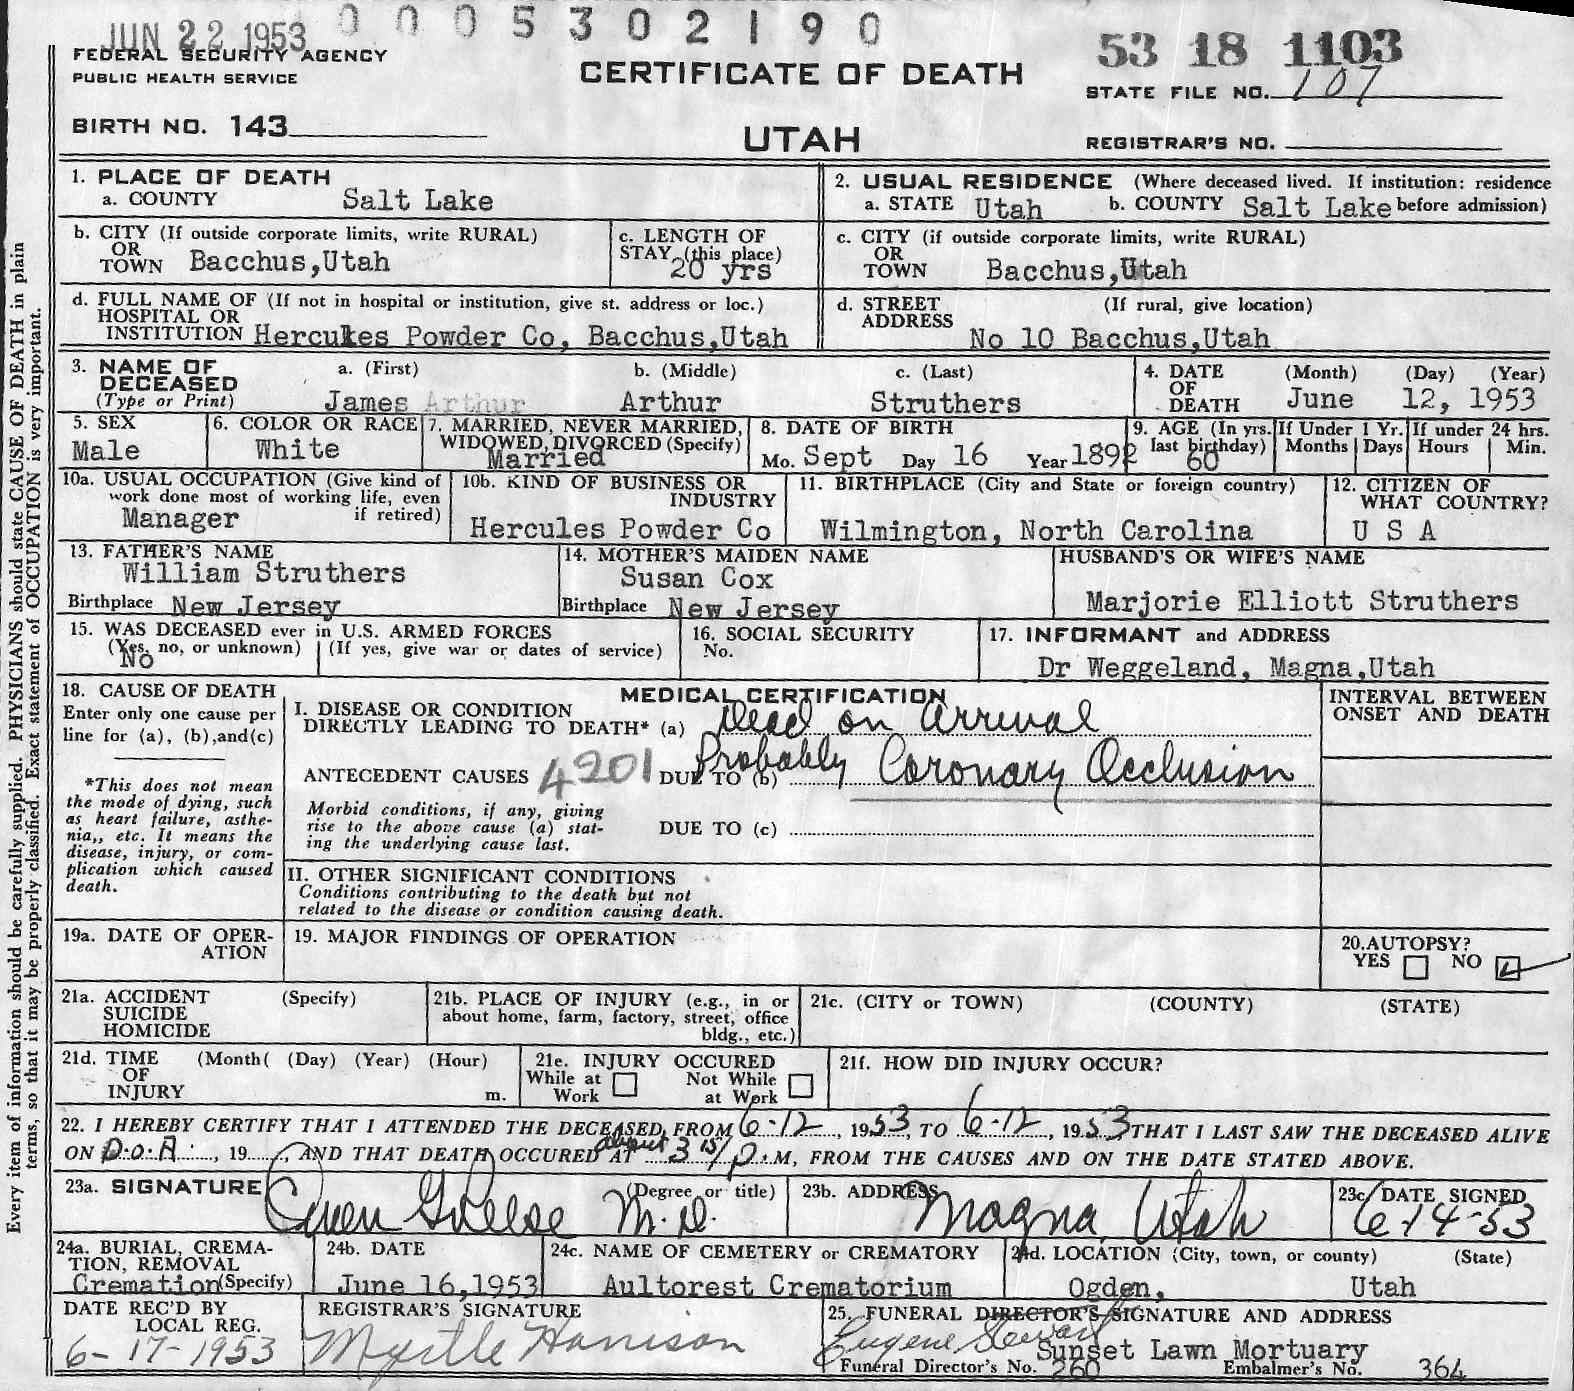 JUN 22 1953
0005302190
53 18 1103
FEDERAL SECURITY AGENCY
PUBLIC HEALTH SERVICE
CERTIFICATE OF DEATH
STATE FILE NO. 107
BIRTH NO. 143
UTAH
REGISTRAR'S NO.
1. PLACE OF DEATH
a. COUNTY Salt Lake
2. USUAL RESIDENCE (Where deceased lived. If institution: residence
a. STATE Utah b. COUNTY Salt Lake before admission)
b. CITY (If outside corporate limits, write RURAL)
OR
TOWN Bacchus,Utah
c. LENGTH OF
STAY (this place)
20 yrs
c. CITY (if outside corporate limits, write RURAL)
OR
TOWN Bacchus,Utah
d. FULL NAME OF (If not in hospital or institution, give st. address or loc.)
HOSPITAL OR
INSTITUTION Hercules Powder Co, Bacchus,Utah
d. STREET (If rural, give location)
ADDRESS
No 10 Bacchus,Utah
3. NAME OF
DECEASED
(Type or Print)
a. (First) b. (Middle) c. (Last)
James Arthur Arthur Struthers
4. DATE (Month) (Day) (Year)
OF
DEATH June 12, 1953
5. SEX
Male
6. COLOR OR RACE
White
7. MARRIED, NEVER MARRIED,
WIDOWED, DIVORCED (Specify)
Married
8. DATE OF BIRTH
Mo. Sept Day 16 Year 1892
9. AGE (In yrs.
last birthday)
60
If Under 1 Yr.
Months Days
If under 24 hrs.
Hours Min.
10a. USUAL OCCUPATION (Give kind of
work done most of working life, even
if retired)
Manager
10b. KIND OF BUSINESS OR
INDUSTRY
Hercules Powder Co
11. BIRTHPLACE (City and State or foreign country)
Wilmington, North Carolina
12. CITIZEN OF
WHAT COUNTRY?
U S A
13. FATHER'S NAME
William Struthers
Birthplace New Jersey
14. MOTHER'S MAIDEN NAME
Susan Cox
Birthplace New Jersey
HUSBAND'S OR WIFE'S NAME
Marjorie Elliott Struthers
15. WAS DECEASED ever in U.S. ARMED FORCES
(Yes, no, or unknown) (If yes, give war or dates of service)
No
16. SOCIAL SECURITY
No.
17. INFORMANT and ADDRESS
Dr Weggeland, Magna,Utah
18. CAUSE OF DEATH
Enter only one cause per
line for (a), (b),and(c)
*This does not mean
the mode of dying, such
as heart failure, asthe-
nia,, etc. It means the
disease, injury, or com-
plication which caused
death.
MEDICAL CERTIFICATION
I. DISEASE OR CONDITION
DIRECTLY LEADING TO DEATH* (a) Dead on Arrival
ANTECEDENT CAUSES 4201 DUE TO (b) Probably Coronary Occlusion
Morbid conditions, if any, giving
rise to the above cause (a) stat-
ing the underlying cause last.
DUE TO (c)
INTERVAL BETWEEN
ONSET AND DEATH
II. OTHER SIGNIFICANT CONDITIONS
Conditions contributing to the death but not
related to the disease or condition causing death.
19a. DATE OF OPER-
ATION
19. MAJOR FINDINGS OF OPERATION
20.AUTOPSY?
YES NO
21a. ACCIDENT (Specify)
SUICIDE
HOMICIDE
21b. PLACE OF INJURY (e.g., in or
about home, farm, factory, street, office
bldg., etc.)
21c. (CITY or TOWN) (COUNTY) (STATE)
21d. TIME (Month( (Day) (Year) (Hour)
OF
INJURY m.
21e. INJURY OCCURED
While at Work Not While at Work
21f. HOW DID INJURY OCCUR?
22. I HEREBY CERTIFY THAT I ATTENDED THE DECEASED FROM 6-12, 1953, TO 6-12, 1953, THAT I LAST SAW THE DECEASED ALIVE
ON D.O.A., 19, AND THAT DEATH OCCURED AT about 3 15 P.M, FROM THE CAUSES AND ON THE DATE STATED ABOVE.
23a. SIGNATURE (Degree or title)
Owen M.D.
23b. ADDRESS
Magna, Utah
23c. DATE SIGNED
6-14-53
24a. BURIAL, CREMA-
TION, REMOVAL
Cremation (Specify)
24b. DATE
June 16,1953
24c. NAME OF CEMETERY or CREMATORY
Aultorest Crematorium
24d. LOCATION (City, town, or county) (State)
Ogden, Utah
DATE REC'D BY
LOCAL REG.
6-17-1953
REGISTRAR'S SIGNATURE
Myrtle Harrison
25. FUNERAL DIRECTOR'S SIGNATURE AND ADDRESS
Eugene Stewart
Sunset Lawn Mortuary
Funeral Director's No. 260 Embalmer's No. 364
Every item of information should be carefully supplied. PHYSICIANS should state CAUSE OF DEATH in plain
terms, so that it may be properly classified. Exact statement of OCCUPATION is very important.